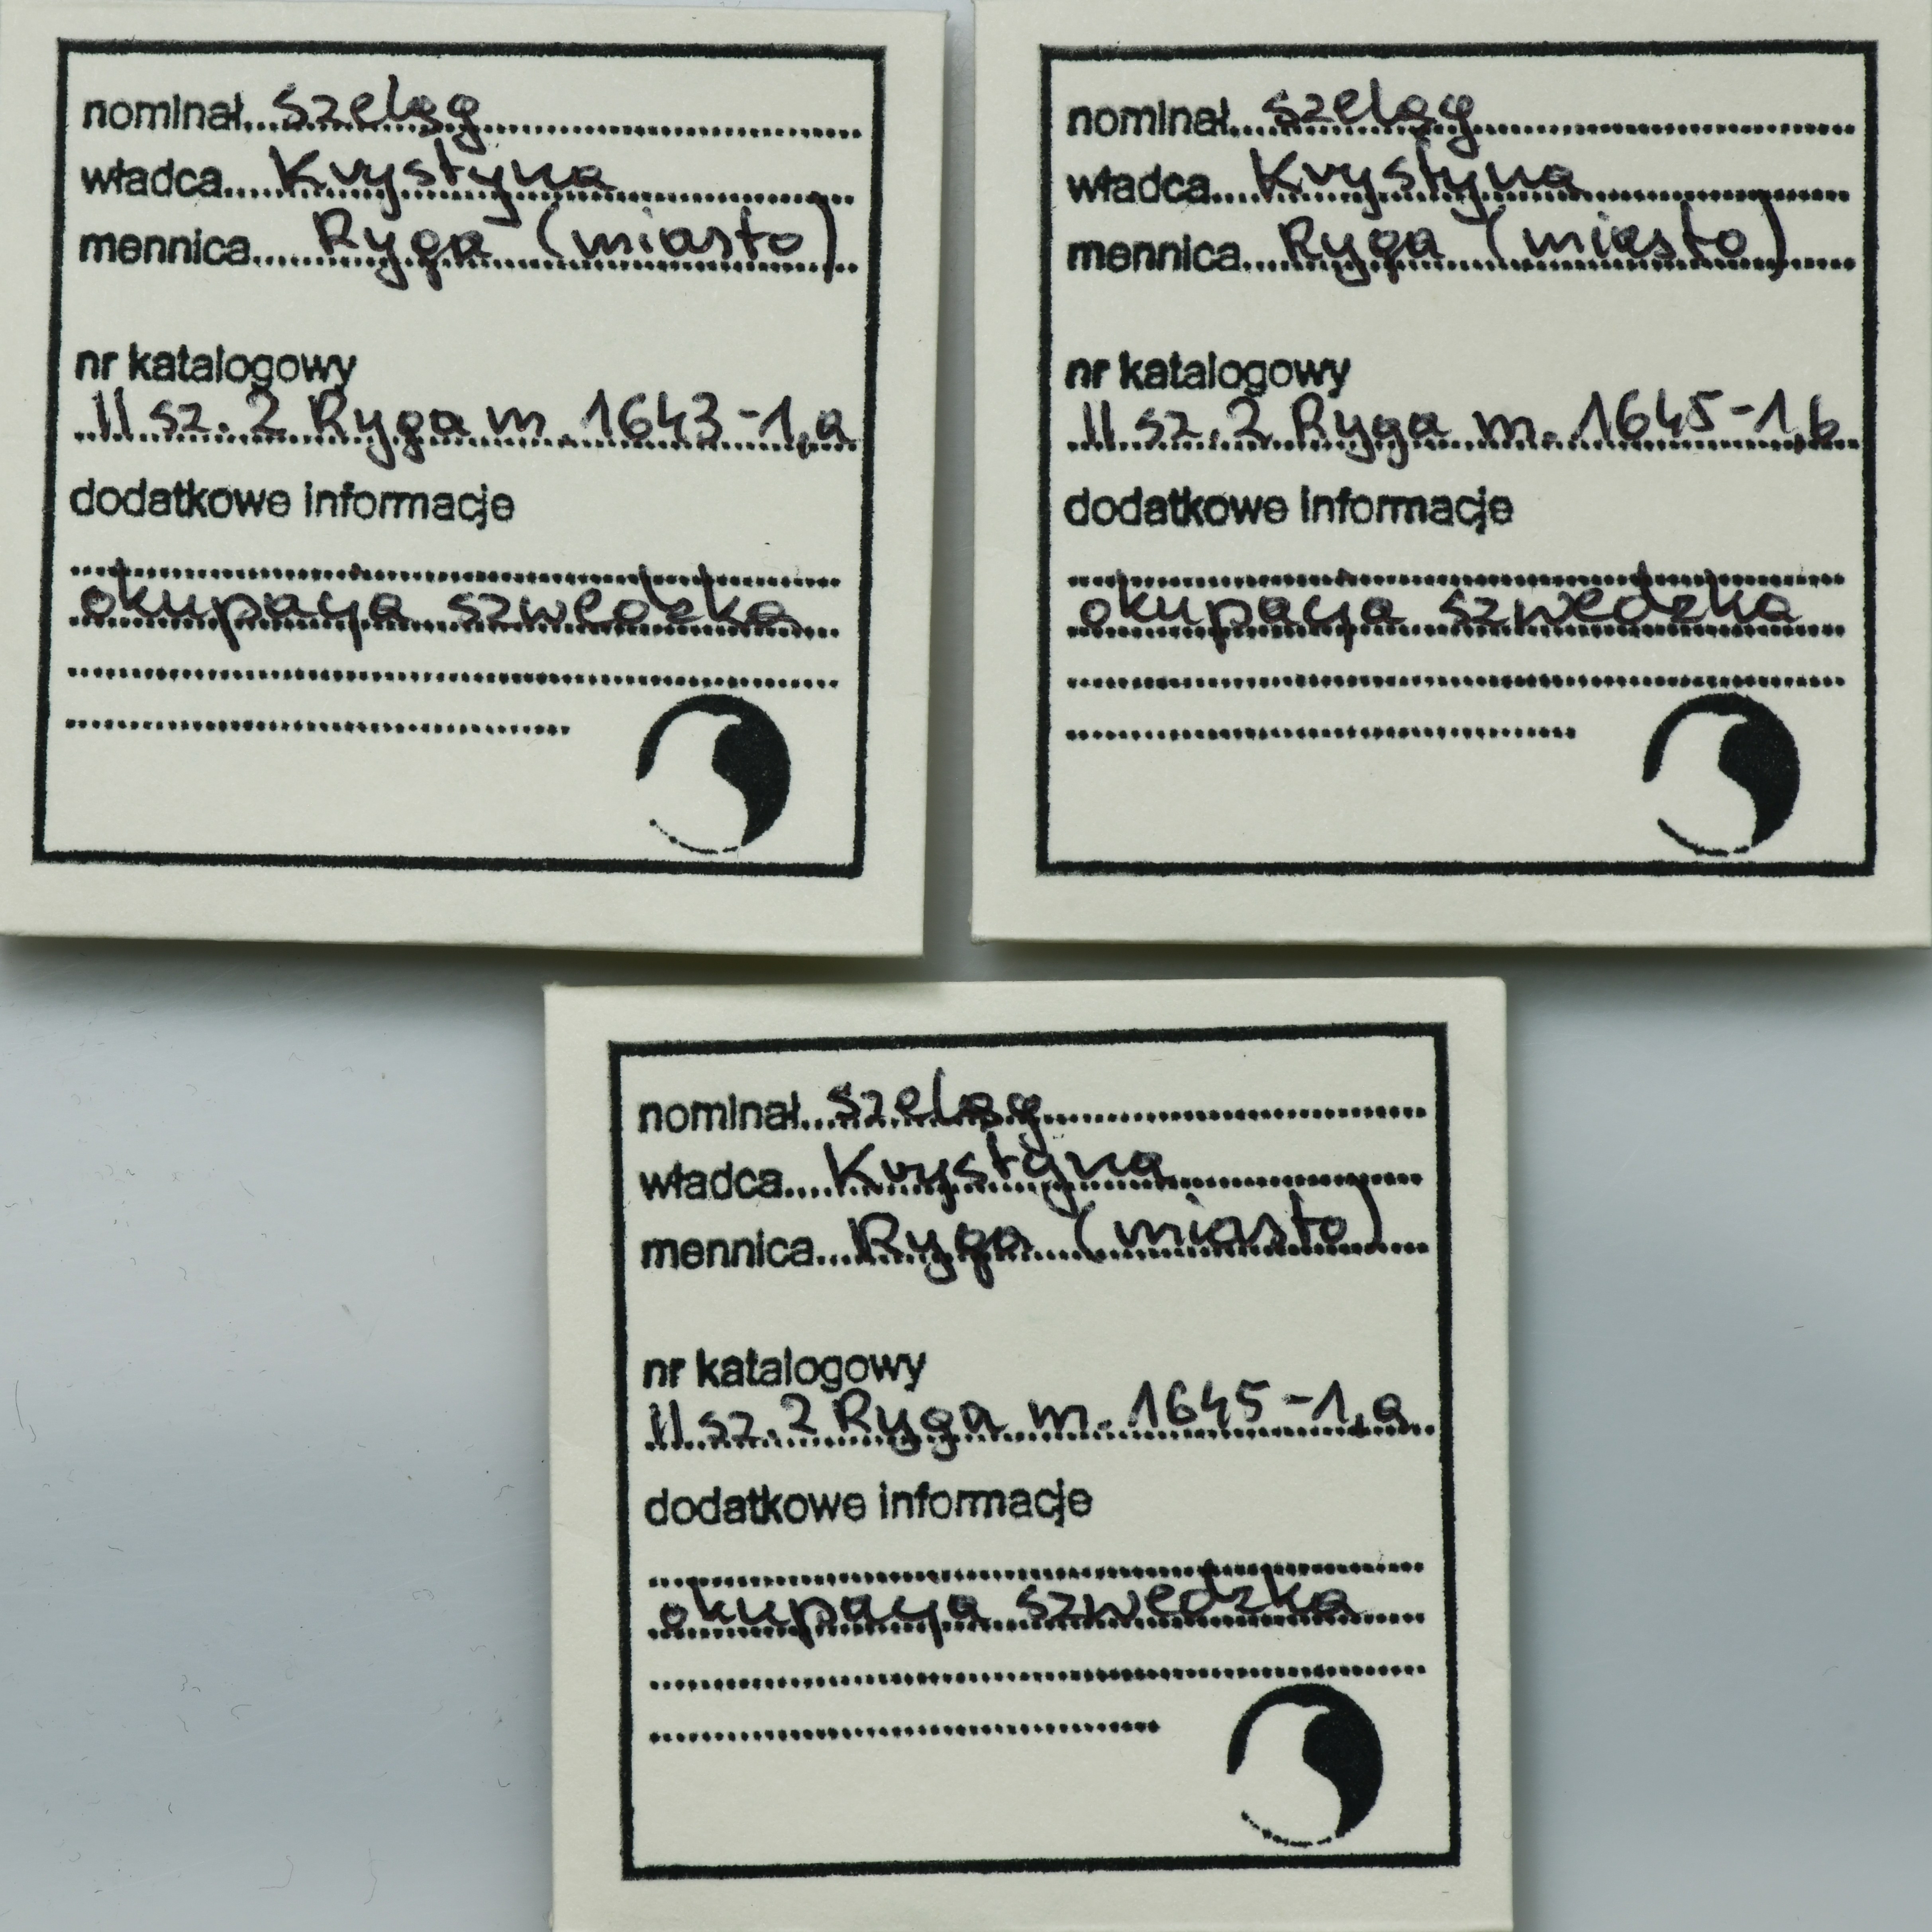 nominał szeląg
władca Krystyna
mennica Ryga (miasto)
nr katalogowy
II sz. 2 Ryga m. 1643-1,a
dodatkowe informacje
okupacja szwedzka
nominał szeląg
władca Krystyna
mennica Ryga (miasto)
nr katalogowy
II sz. 2 Ryga m. 1645-1,b
dodatkowe informacje
okupacja szwedzka
nominał szeląg
władca Krystyna
mennica Ryga (miasto)
nr katalogowy
II sz. 2 Ryga m. 1645-1,a
dodatkowe informacje
okupacja szwedzka